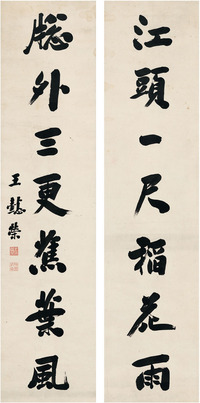 江頭一尺稻花雨
牕外三更蕉葉風
王懿榮